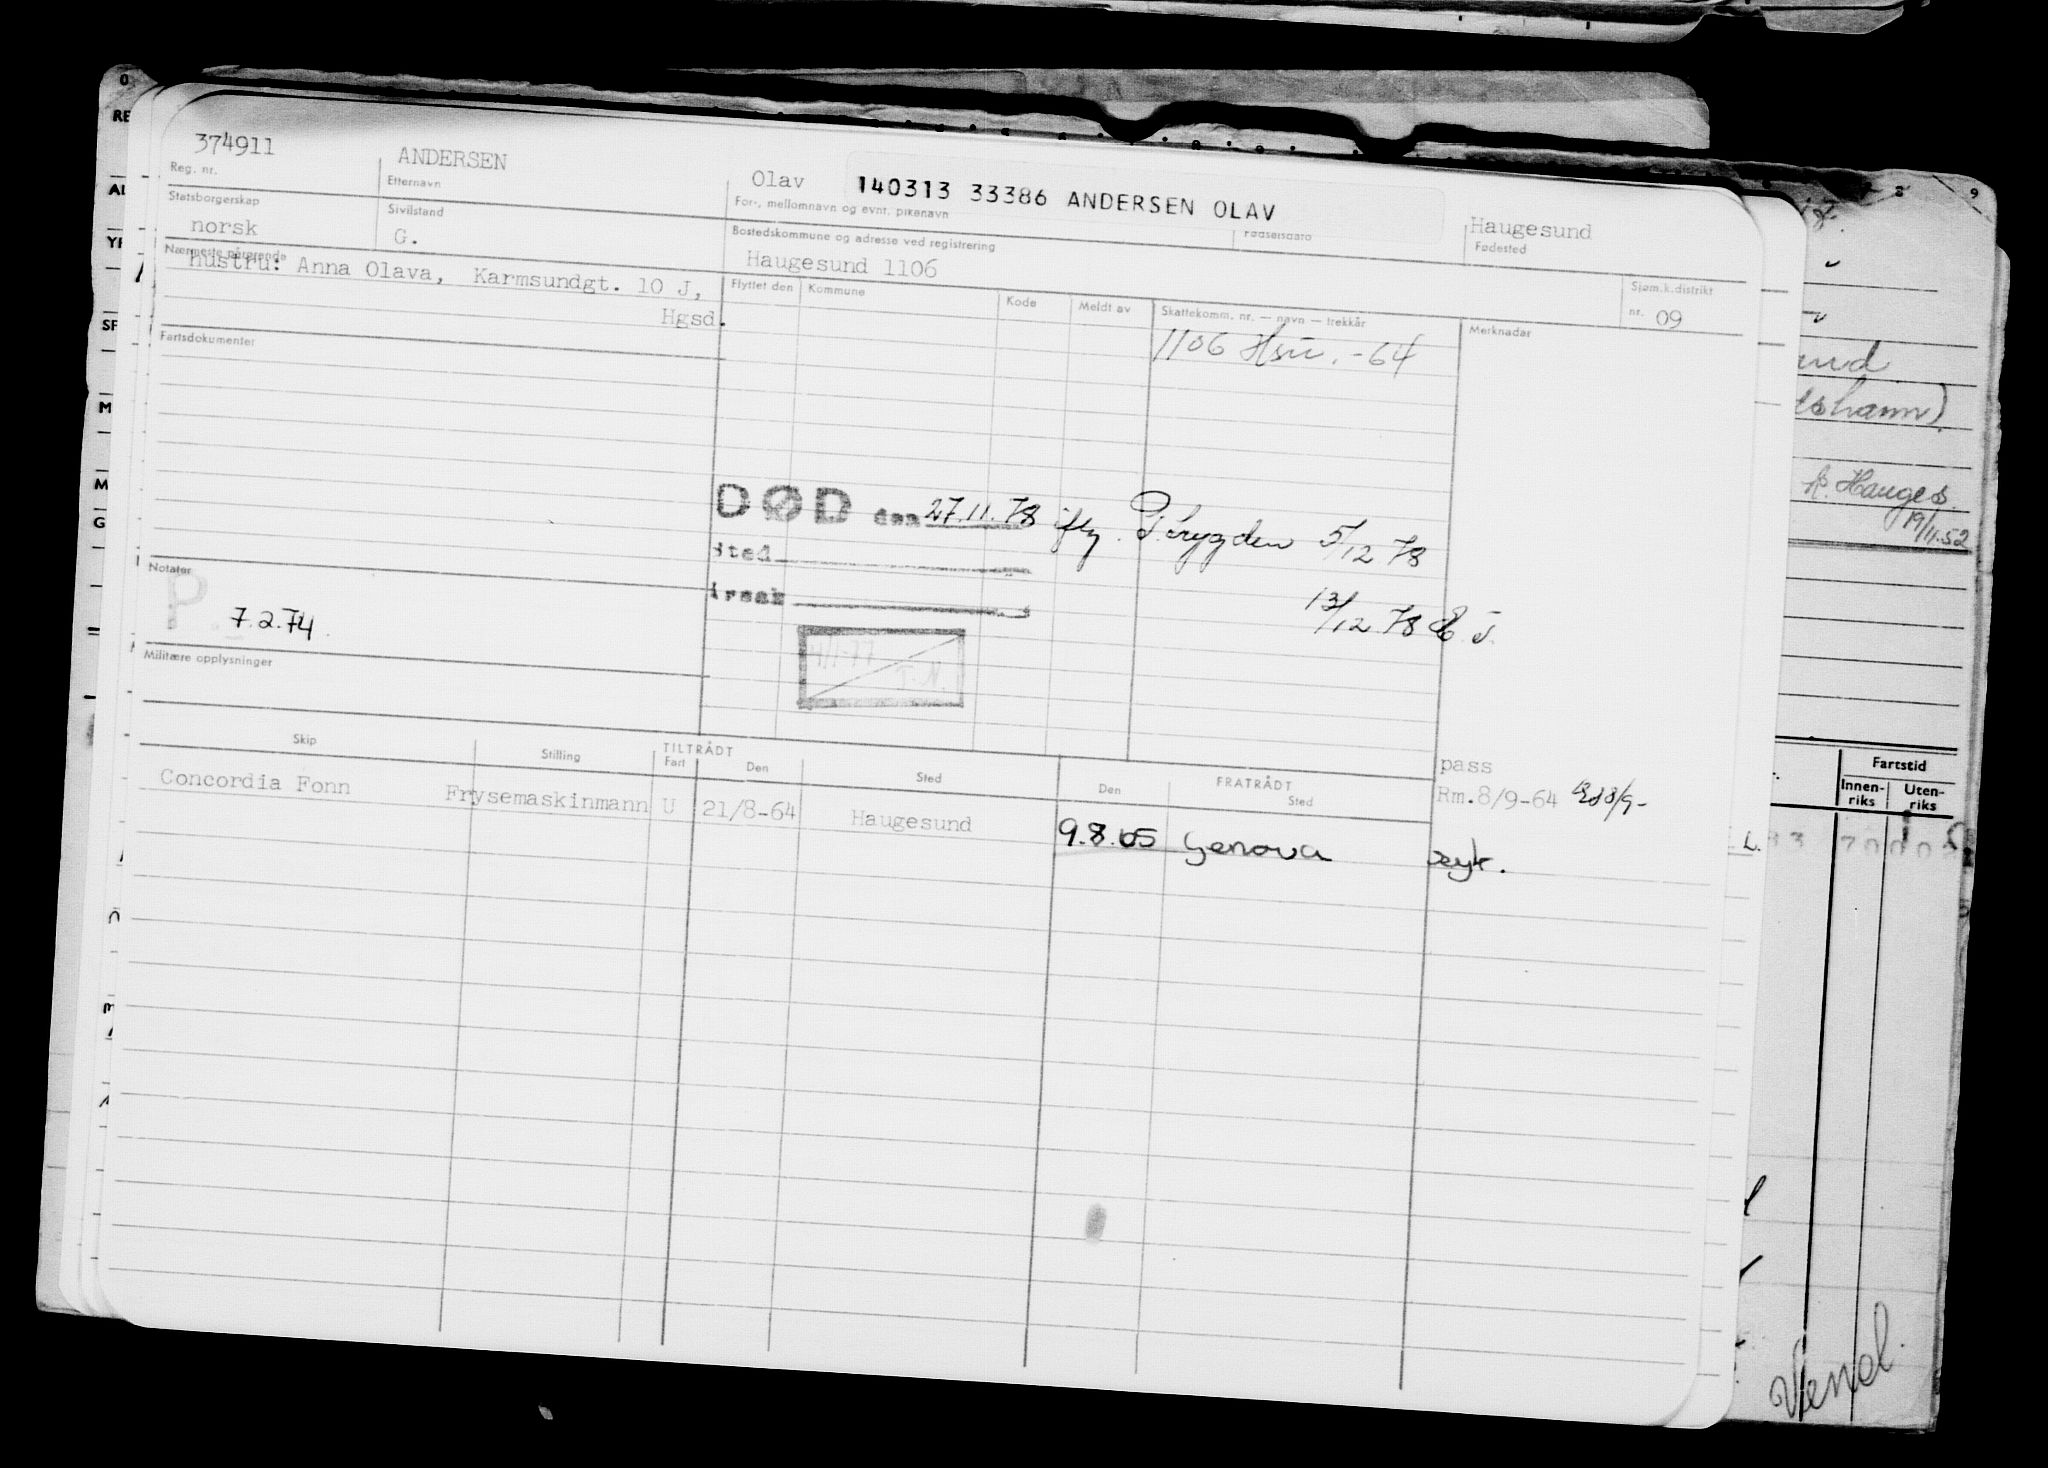 374911
Reg. nr.
ANDERSEN
Etternavn
Olav
140313 33386 ANDERSEN OLAV
For-, mellomnavn og evnt. pikenavn
Fødselsdato
Haugesund
Fødested
Statsborgerskap
norsk
Sivilstand
G.
Bostedskommune og adresse ved registrering
Haugesund 1106
Nærmeste pårørende
hustru: Anna Olava, Karmsundgt. 10 J,
Hgsd.
Flyttet den
Kommune
Kode
Meldt av
Skattekomm. nr. — navn — trekkår
1106 Hsu. -64
Merknader
Sjøm.k.distrikt
nr. 09
Fartsdokumenter
DØD den 27.11.78 iflg. P. trygden 5/12 78
Sted
Årsak
13/12 78
Notater
P
7.2.74
4/1-77
T.N.
Militære opplysninger
Skip
Stilling
TILTRÅDT
Fart
Den
Sted
FRATRÅDT
Den
Sted
pass
Rm.8/9-64
Concordia Fonn
Frysemaskinmann
U
21/8-64
Haugesund
9.8.65
Genova
syk.
und
shamn)
Hauges.
19/11.52
Fartstid
Innen-
riks
Uten-
riks
Vend.